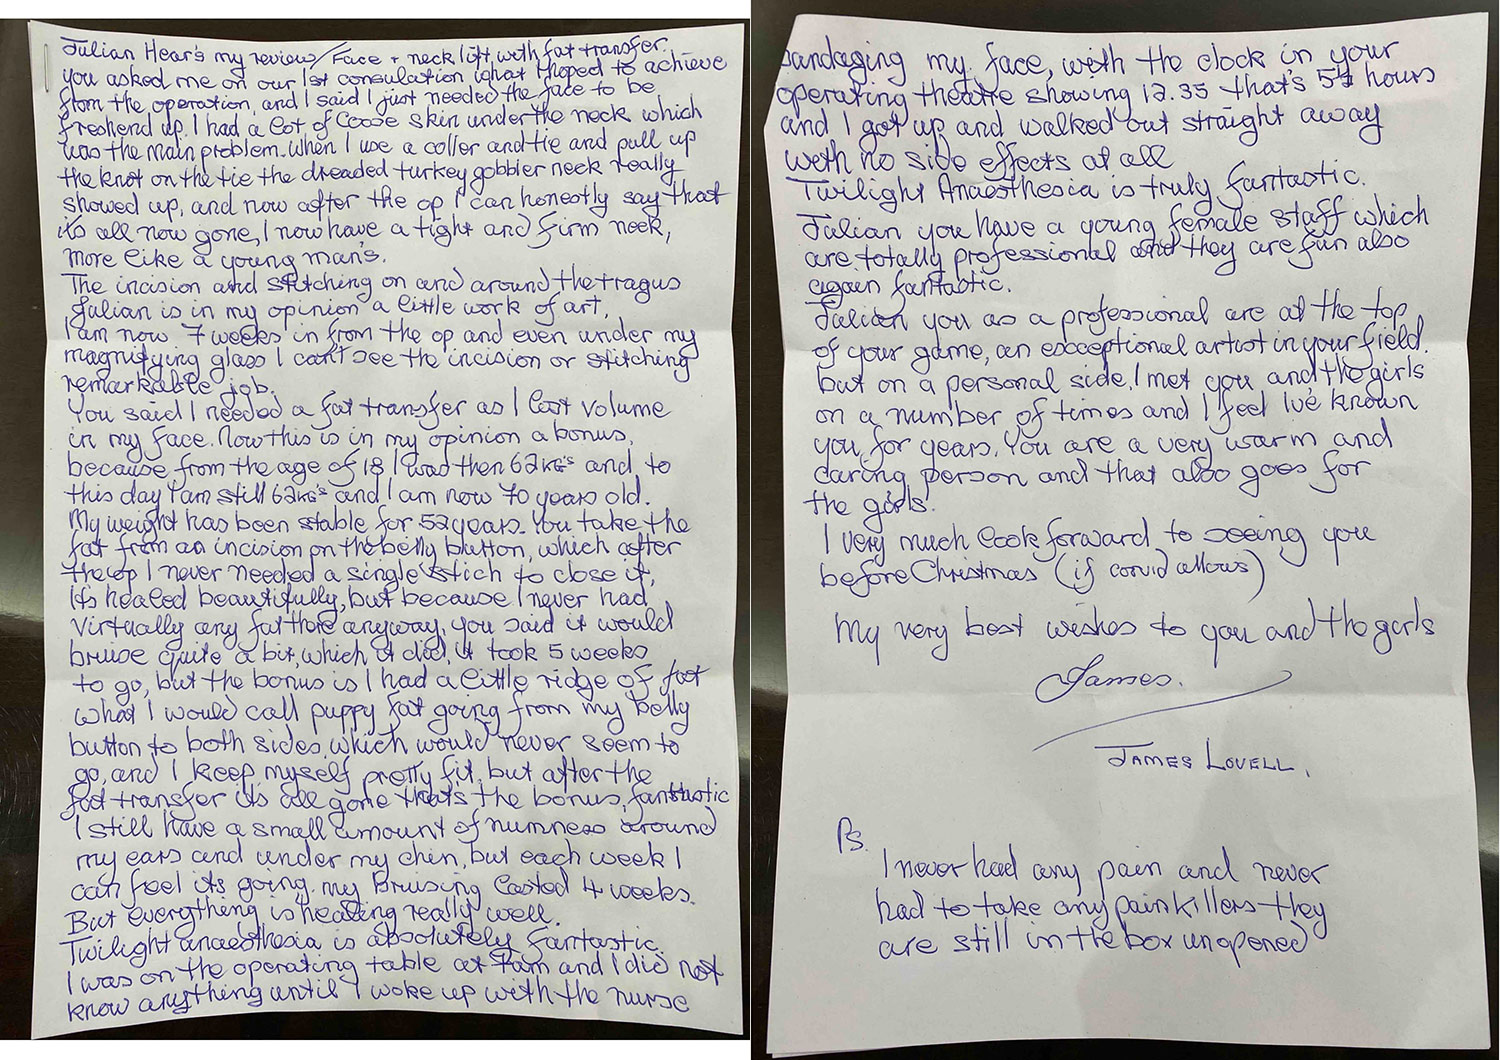 Julian Hear's my review/Face + neck lift with fat transfer.
you asked me on our 1st consulation what I hoped to achieve
from the operation, and I said I just needed the face to be
freshend up. I had a lot of loose skin under the neck which
was the main problem. When I use a coller and tie and pull up
the knot on the tie the dreaded turkey gobbler neck really
showed up, and now after the op I can honestly say that
it's all now gone, I now have a tight and firm neck,
more like a young man's.
The incision and stitching on and around the tragus
Julian is in my opinion a little work of art,
I am now 7 weeks in from the op and even under my
magnifying glass I can't see the incision or stitching
remarkable job.
You said I needed a fat transfer as I lost volume
in my face. Now this is in my opinion a bonus,
because from the age of 18 I was then 62kg's and to
this day I am still 62kg's and I am now 70 years old.
My weight has been stable for 52 years. You take the
fat from an incision on the belly button, which after
the op I never needed a single stich to close it,
it's healed beautifully, but because I never had
virtually any fat there anyway, you said it would
bruise quite a bit, which it did, it took 5 weeks
to go, but the bonus is I had a little ridge of fat
what I would call puppy fat going from my belly
button to both sides which would never seem to
go, and I keep myself pretty fit, but after the
fat transfer it's all gone that's the bonus, fantastic
I still have a small amount of numness around
my ears and under my chin, but each week I
can feel its going. my Bruising lasted 4 weeks.
But everything is healing really well.
Twilight anaesthesia is absolutely fantastic.
I was on the operating table at 7am and I did not
know anything until I woke up with the nurse
bandaging my face, with the clock in your
operating theatre showing 12.35 that's 5½ hours
and I got up and walked out straight away
with no side effects at all
Twilight Anaesthesia is truly fantastic.
Julian you have a young female staff which
are totally professional and they are fun also
again fantastic.
Julian you as a professional are at the top
of your game, an exceptional artist in your field.
but on a personal side, I met you and the girls
on a number of times and I feel Ive known
you for years. You are a very warm and
caring person and that also goes for
the girls.
I very much look forward to seeing you
before Christmas (if corvid allows)
My very best wishes to you and the girls
James.
JAMES LOVELL.
Ps.
I never had any pain and never
had to take any painkillers they
are still in the box unopened